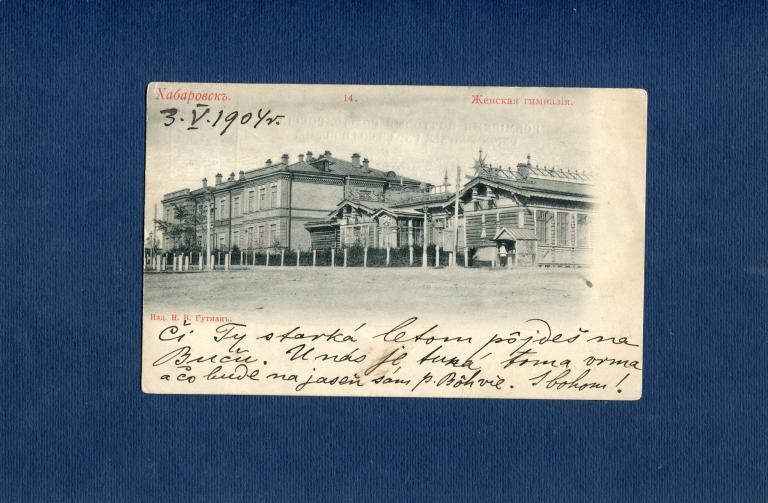 Хабаровскъ.
14.
Женская гимназія.
3. V. 1904 г.
Изд. Н. В. Гутманъ.
Či Ty starká letom pôjdeš na
Buču. U nás je tuná toma vrma
ačo bude na jaseň sám p. Bôh vie. S bohom!